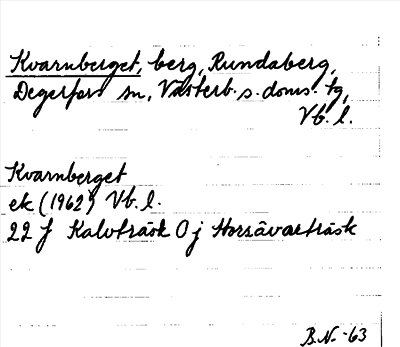 Kvarnberget, berg, Rundaberg,
Degerfors sn, Västerb. s. doms. tg,
Vb. l.
Kvarnberget
ek (1962) Vb. l.
22 J Kalvträsk 0 j Horsåvarträsk
B.N. -63